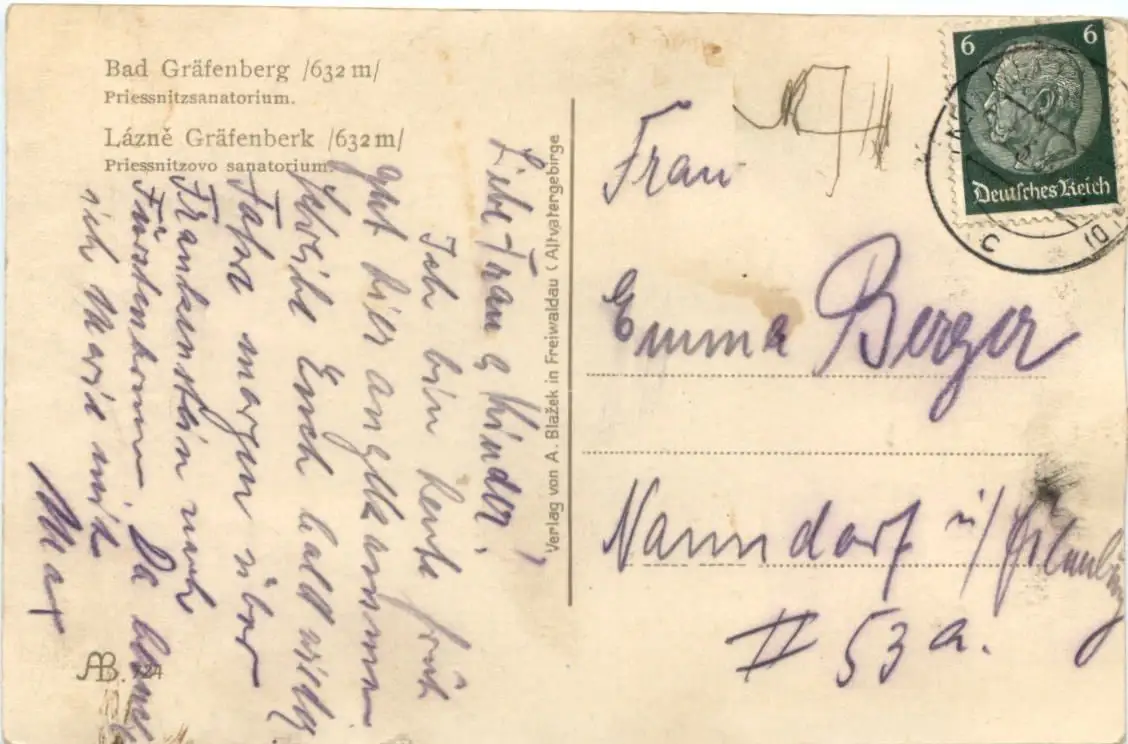 Bad Gräfenberg /632 m/
Priessnitzsanatorium.
Lázně Gräfenberk /632 m/
Priessnitzovo sanatorium.
Liebe Frau & Kinder!
Ich bin heute früh
gut hier angekommen
schreibe Euch bald
Fahre morgen über
Frankenstein nach
Fürstenbrunn. Da
ich Marie mich
Max
AB. 124
Verlag von A. Blažek in Freiwaldau (Altvatergebirge
6 6
Deutsches Reich
Frau
Emma Berger
Nanndorf
II 53 a.